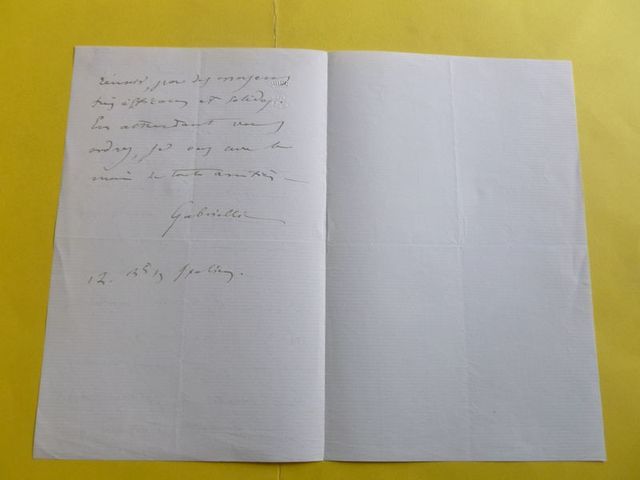 réussir, par des moyens
très efficaces et solides.
En attendant vos
ordres, je vous serre la
main de toute amitié.
Gabrielli
12. Bd des Italiens.